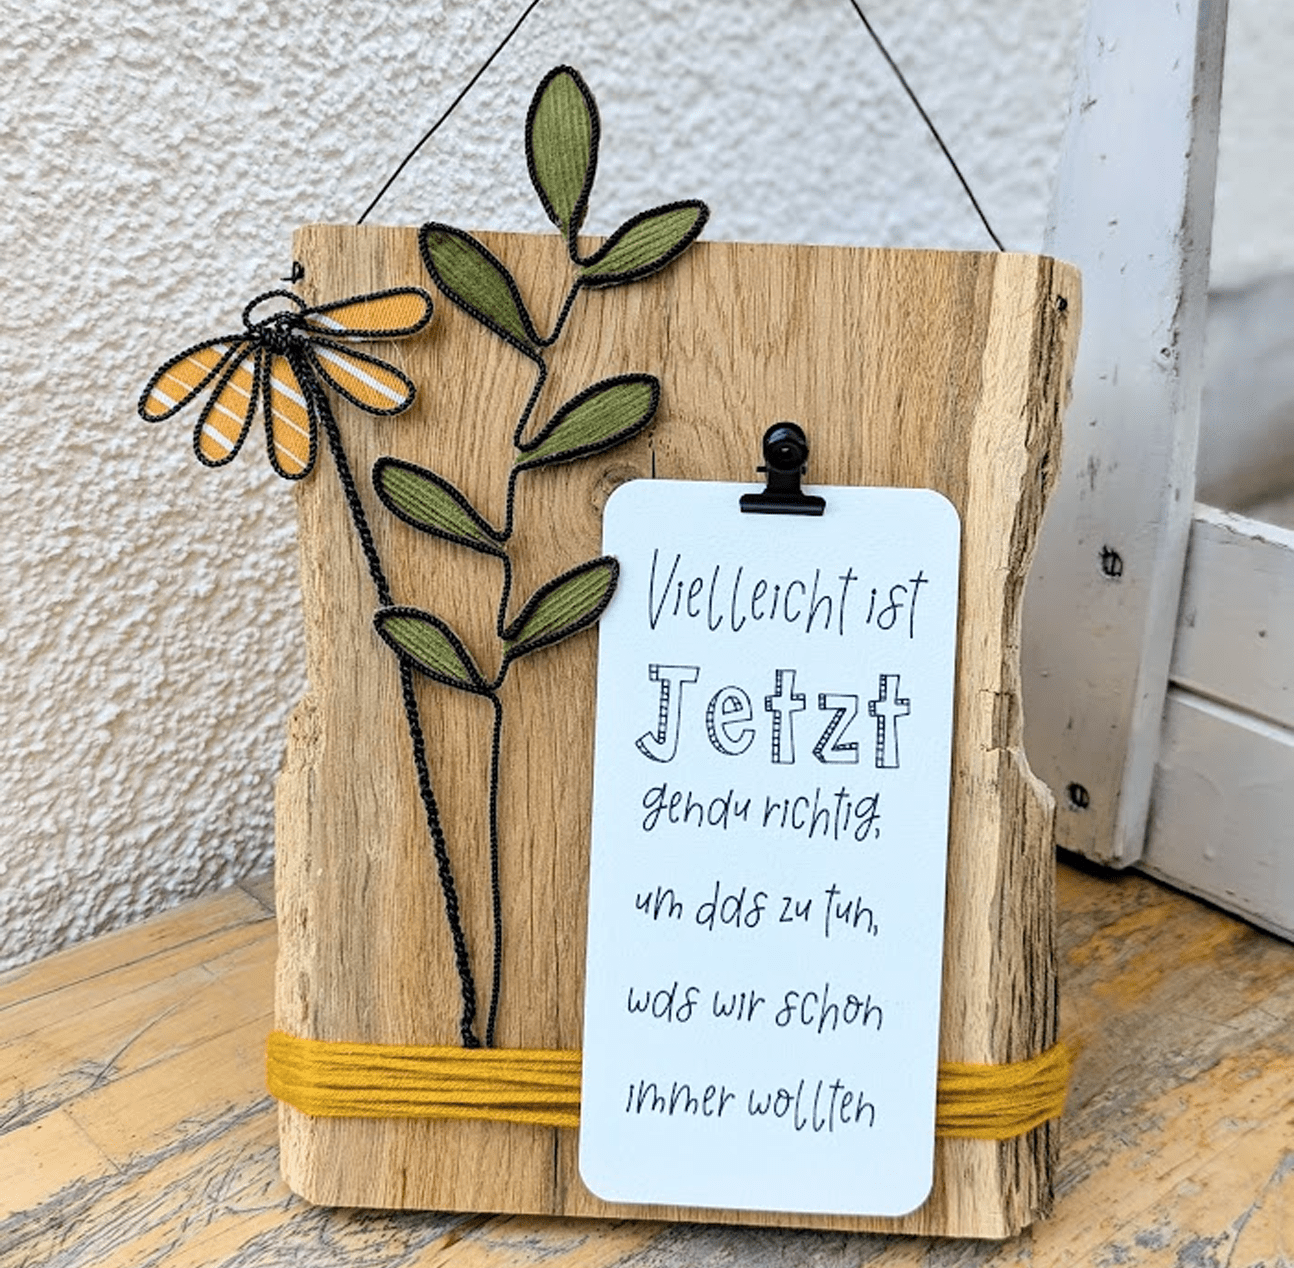 Vielleicht ist
Jetzt
genau richtig,
um das zu tun,
was wir schon
immer wollten